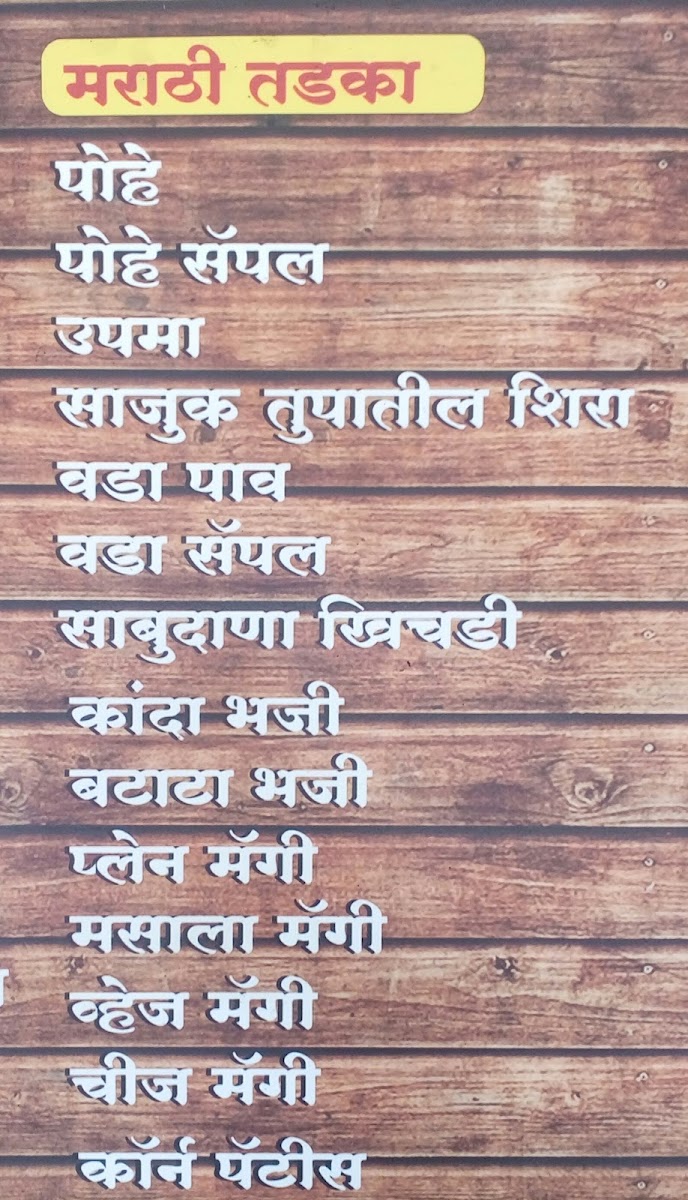 मराठी तडका
पोहे
पोहे सॅपल
उपमा
साजुक तुपातील शिरा
वडा पाव
वडा सॅपल
साबुदाणा खिचडी
कांदा भजी
बटाटा भजी
प्लेन मॅगी
मसाला मॅगी
व्हेज मॅगी
चीज मॅगी
कॉर्न पॅटीस